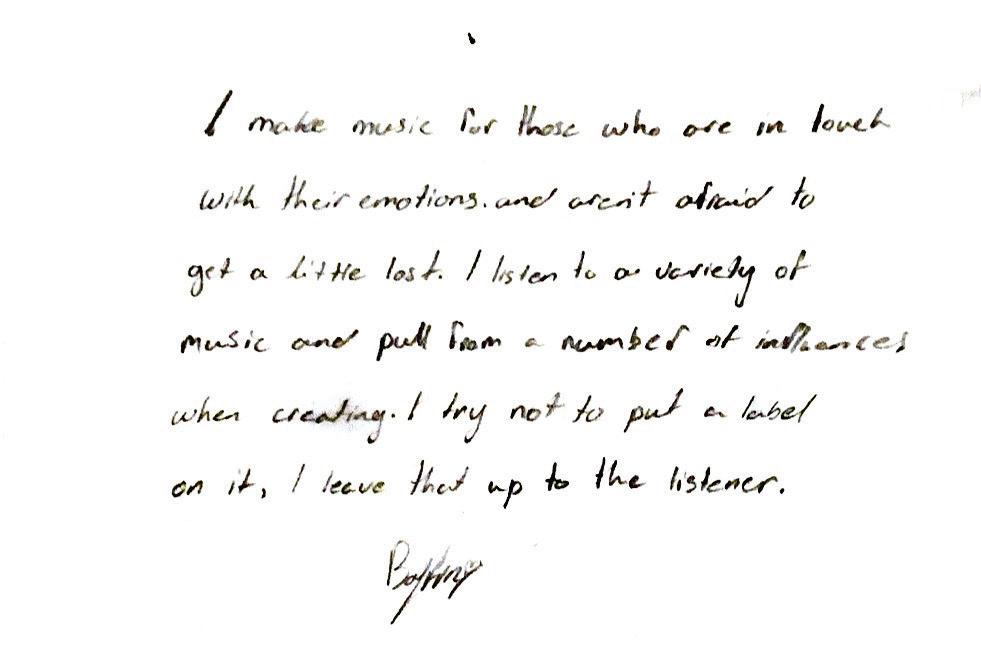 I make music for those who are in touch
with their emotions. and aren't afraid to
get a little lost. I listen to a variety of
music and pull from a number of influences
when creating. I try not to put a label
on it, I leave that up to the listener.